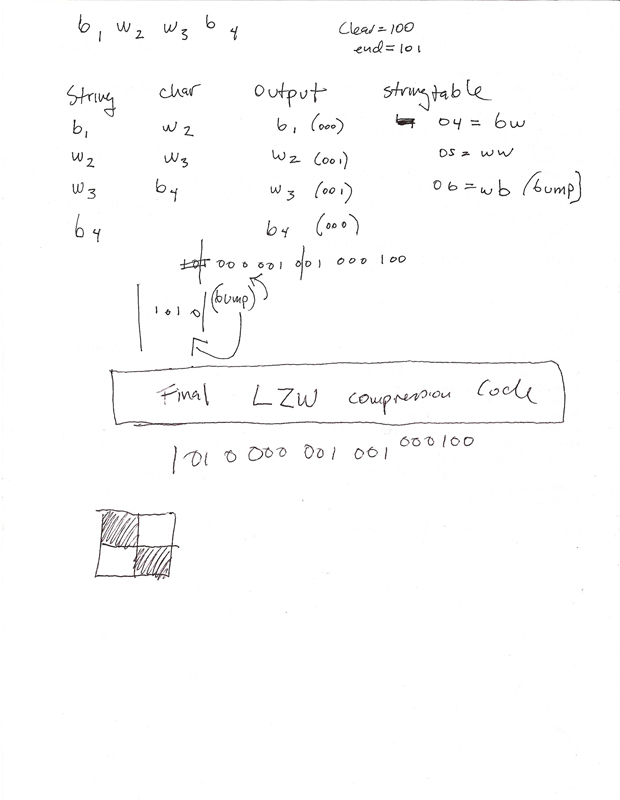 b1 w2 w3 b4
Clear=100
end=101
String char Output stringtable
b1 w2 b1 (000) 04 = bw
w2 w3 w2 (001) 05 = ww
w3 b4 w3 (001) 06 = wb (bump)
b4 b4 (000)
101 000 001 001 000 100
1010 (bump)
Final LZW compression Code
101 0 000 001 001 000 100